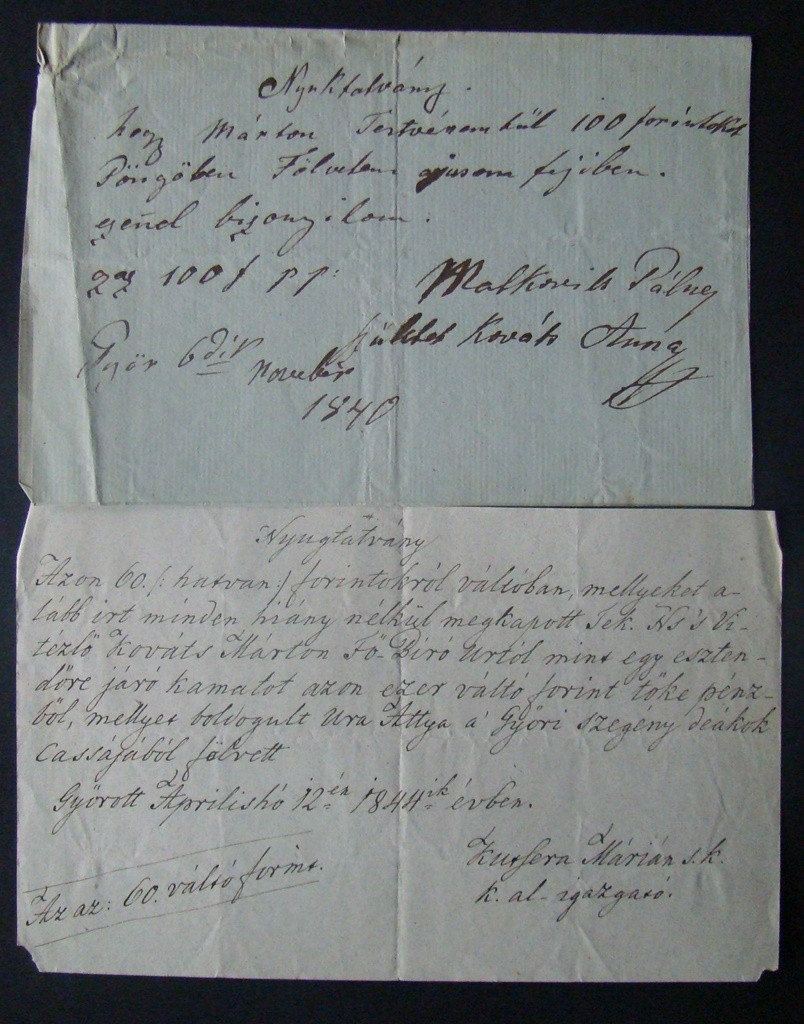 Nyuktatvány.
hogy Márton Testvéremtül 100 forintokat
Pöngöben Fölvetem jusom fejiben.
ezennel bizonyitom.
az az 100 f p p:
Matkovits Pálney
Győr 6dik November
születet Kováts Anna
1840
Nyugtatvány
Azon 60. /: hatvan :/ forintokról váltóban, mellyeket a-
lább irt minden hiány nélkül megkapott Tek. Ns's Vi-
tézlő Kováts Márton Fő-Biró Urtól mint egy eszten-
dőre járó kamatot azon ezer váltó forint tőke pénz-
ből, mellyet boldogult Ura Attya a' Győri szegény deákok
cassájából fölvett
Győrött Áprilishó 12én 1844ik évben.
Kutsera Márián s.k.
k. al-igazgató.
Az az: 60. váltó forint.